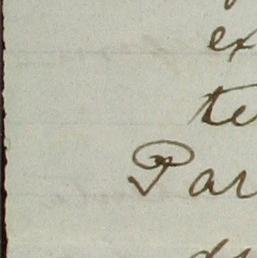 ex
te
Par